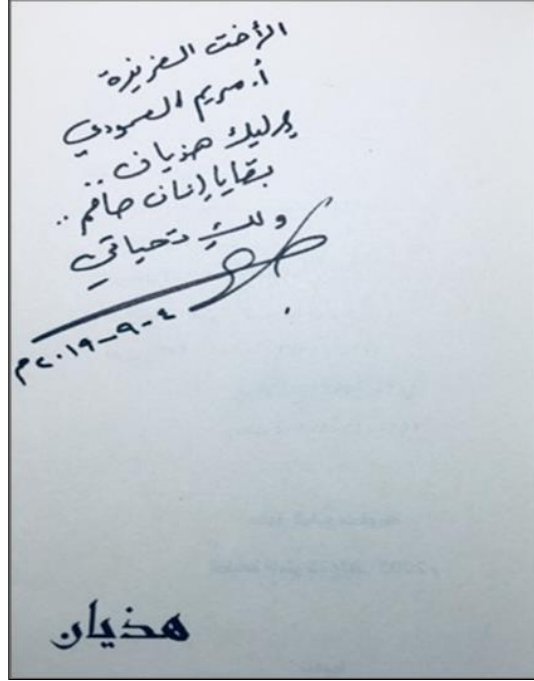 الأخت العزيزة
أ. مريم العمودي
إليك هذيان ..
بقايا إنسان صائم ..
ولك تحياتي
٤-٩-٢٠١٩م
هذيان